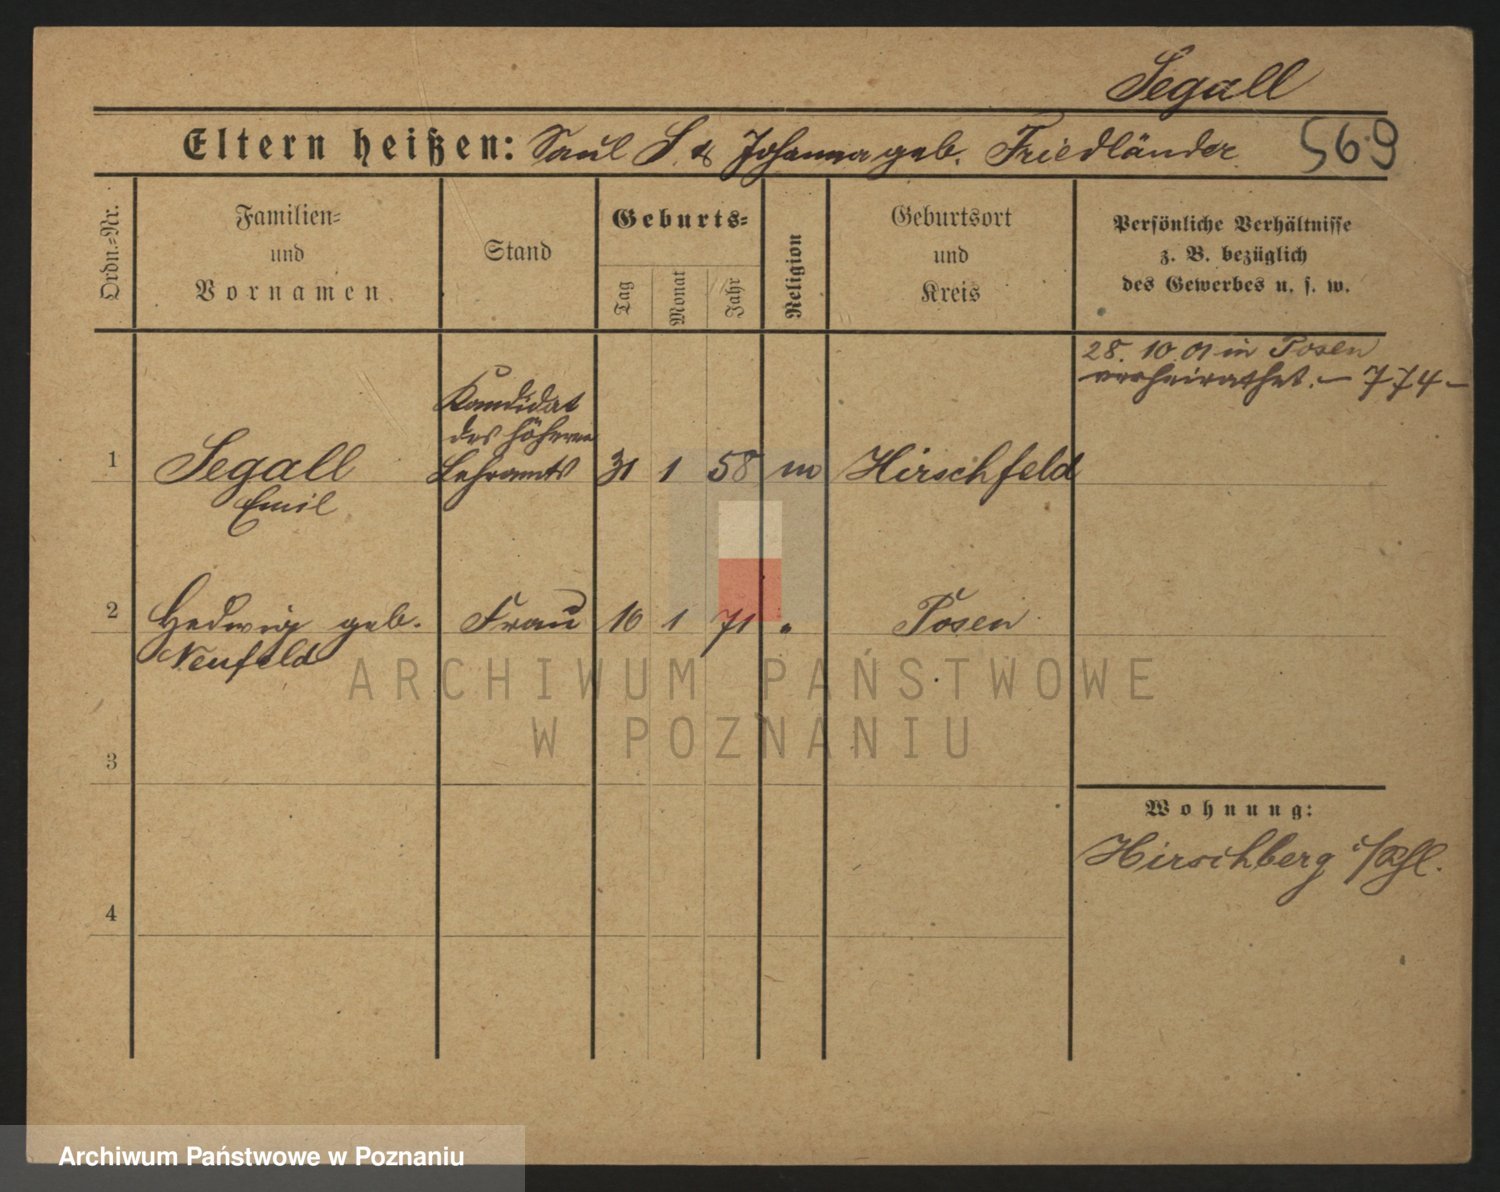 Segall
Eltern heißen: Saul S. & Johanna geb. Friedländer
569
Ordn.-Nr.
Familien-
und
Vornamen
Stand
Geburts-
Tag
Monat
Jahr
Religion
Geburtsort
und
Kreis
Persönliche Verhältnisse
z. B. bezüglich
des Gewerbes u. s. w.
28. 10. 01 in Posen
verheirathet. – 774 –
1
Segall
Emil
Kandidat
des höheren
Lehramts
31 1 58 m Hirschfeld
2
Hedwig geb.
Neufeld
Frau 10 1 71 " Posen
3
Wohnung:
Hirschberg i/Schl.
4
ARCHIWUM PAŃSTWOWE
W POZNANIU
Archiwum Państwowe w Poznaniu